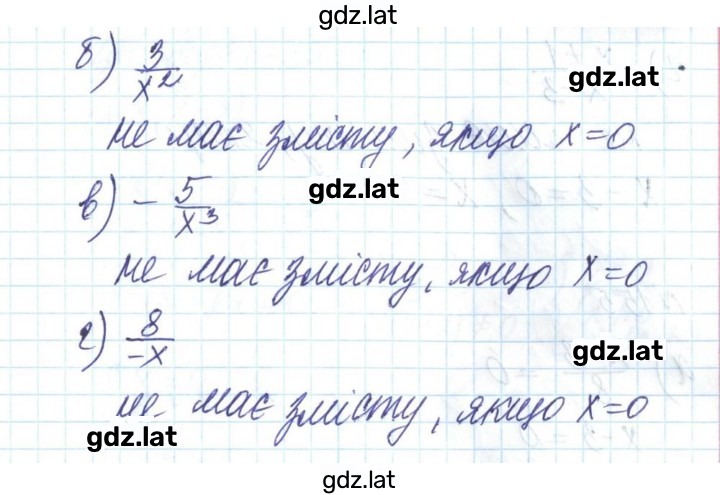 gdz.lat
б) 3/x²
gdz.lat
не має змісту, якщо x=0
в) - 5/x³
gdz.lat
не має змісту, якщо x=0
г) 8/-x
gdz.lat
не має змісту, якщо x=0
gdz.lat
gdz.lat